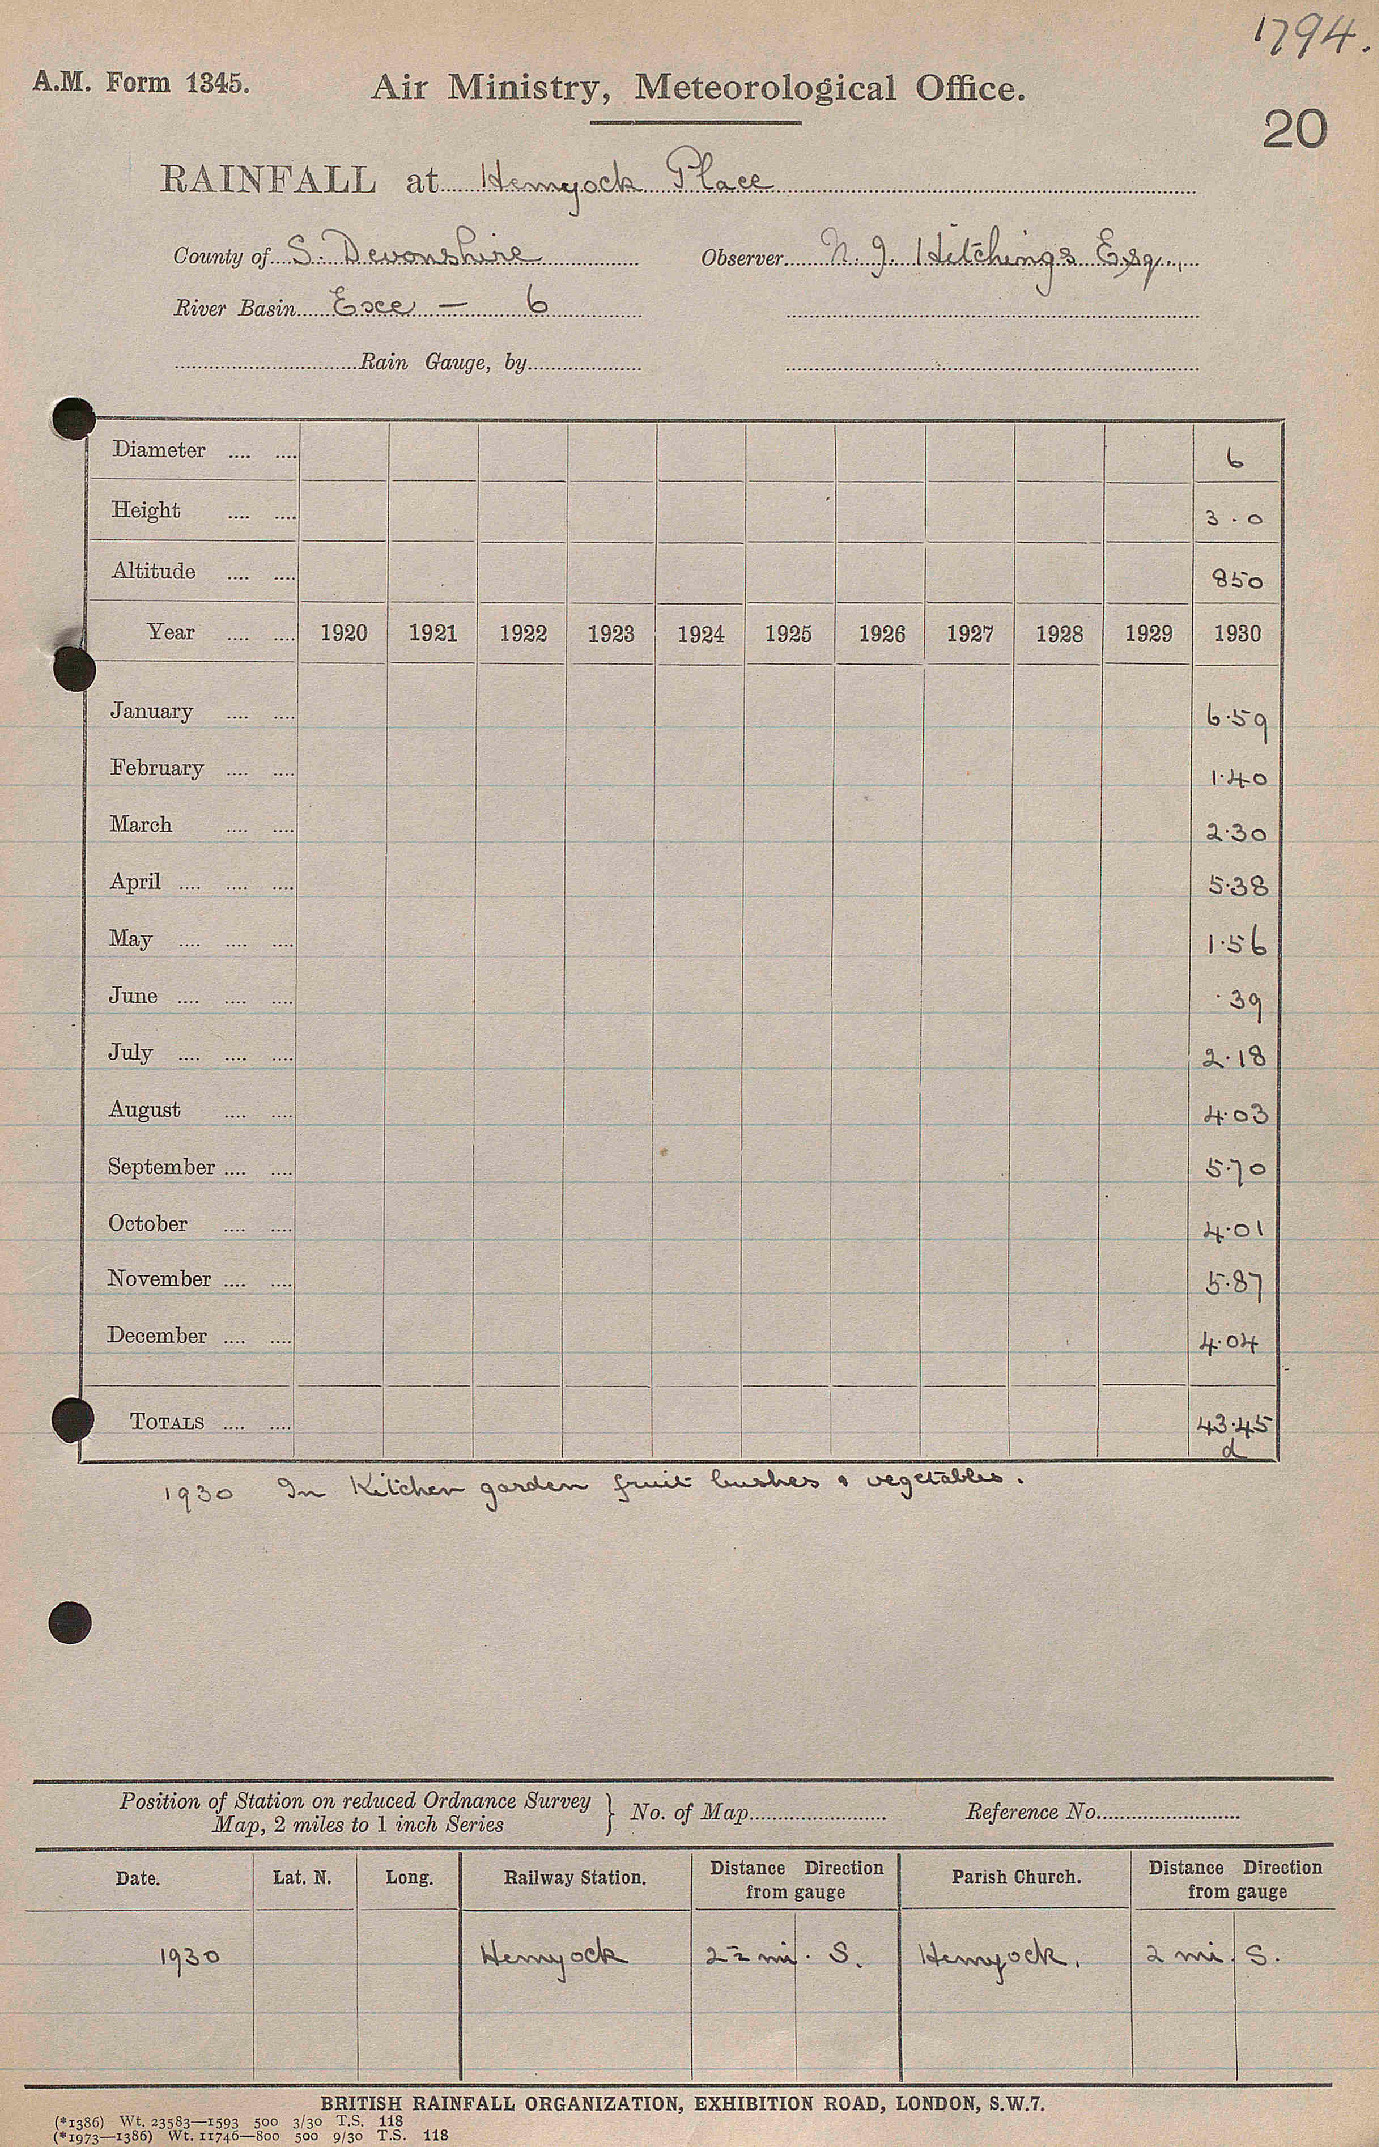 1794.
A.M. Form 1345. Air Ministry, Meteorological Office.
20
RAINFALL at Hemyock Place
County of S. Devonshire Observer N. J. Hitchings Esq.,
River Basin Exce — 6
Rain Gauge, by
Diameter .... .... 6
Height .... .... 3.0
Altitude .... .... 850
Year .... .... 1920 1921 1922 1923 1924 1925 1926 1927 1928 1929 1930
January .... .... 6.59
February .... .... 1.40
March .... .... 2.30
April .... .... .... 5.38
May .... .... .... 1.56
June .... .... .... .39
July .... .... .... 2.18
August .... .... 4.03
September .... .... 5.70
October .... .... 4.01
November .... .... 5.87
December .... .... 4.04
TOTALS .... .... 43.45
d
1930 In Kitchen garden fruit bushes & vegetables.
Position of Station on reduced Ordnance Survey } No. of Map Reference No.
Map, 2 miles to 1 inch Series
Date. Lat. N. Long. Railway Station. Distance Direction from gauge Parish Church. Distance Direction from gauge
1930 Hemyock 2½ mi. S. Hemyock. 2 mi. S.
BRITISH RAINFALL ORGANIZATION, EXHIBITION ROAD, LONDON, S.W.7.
(*1386) Wt. 23583—1593 500 3/30 T.S. 118
(*1973—1386) Wt. 11746—800 500 9/30 T.S. 118